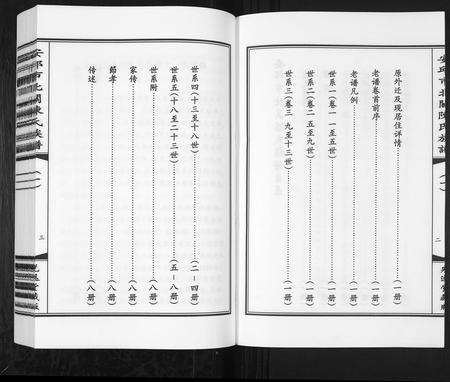 安邱市北關陳氏族譜
（一）
二
原外迁及现居住详情……（一册）
老谱卷首前序……（一册）
老谱凡例……（一册）
世系一（卷一 一至五世）……（一册）
世系二（卷二 五至九世）……（一册）
世系三（卷三 九至十三世）……（一册）
世系四（十三至十八世）……（二－四册）
世系五（十八至二十三世）……（五－八册）
世系附……（八册）
家传……（八册）
節孝……（八册）
传述……（八册）
安邱市北關陳氏族譜
（一）
三